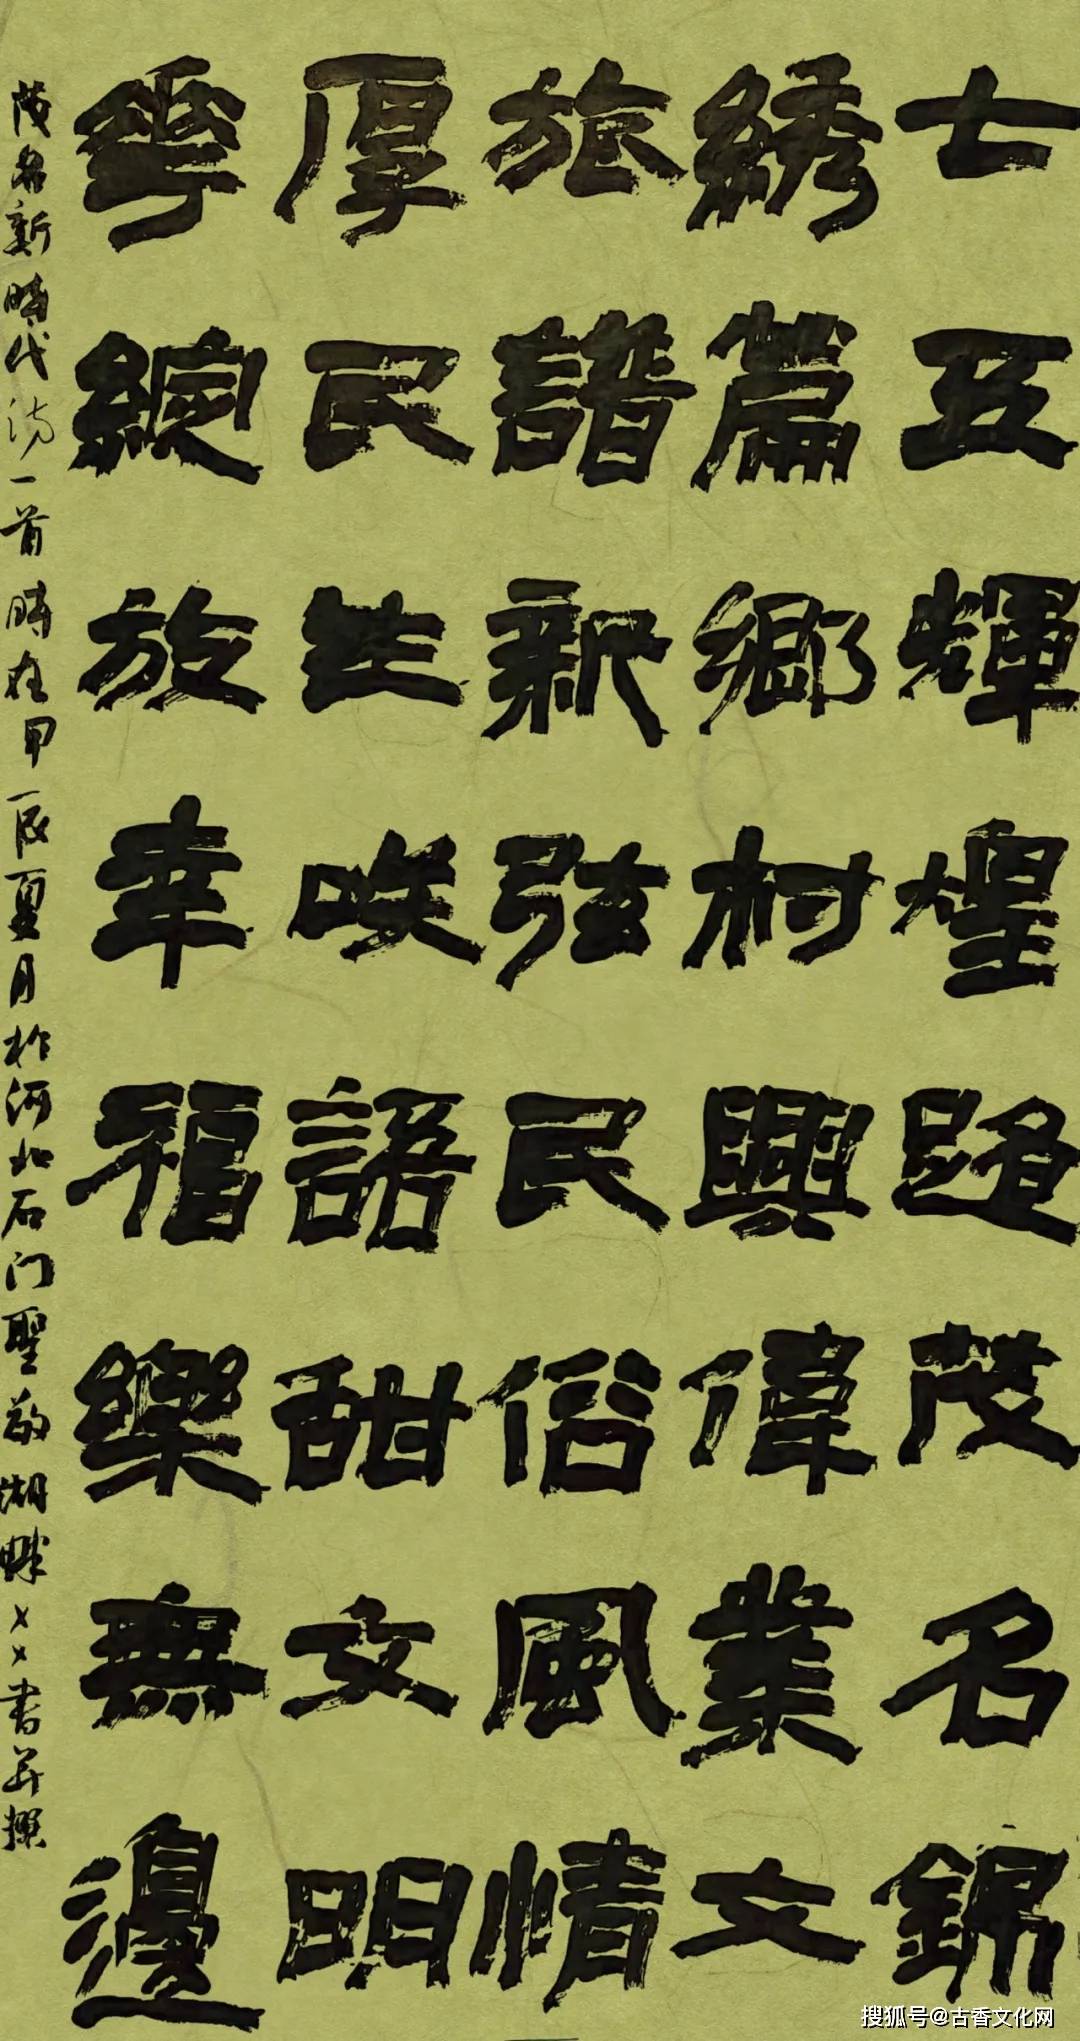 七五輝煌題茂名錦
綉篇鄉村興偉業文
旅譜新弦民俗風情
厚民生咲語甜文明
華綻放幸福樂無邊
茂名新時代诗一首時在甲辰夏月於河北石门聖湖畔××書并撰
搜狐号@古香文化网